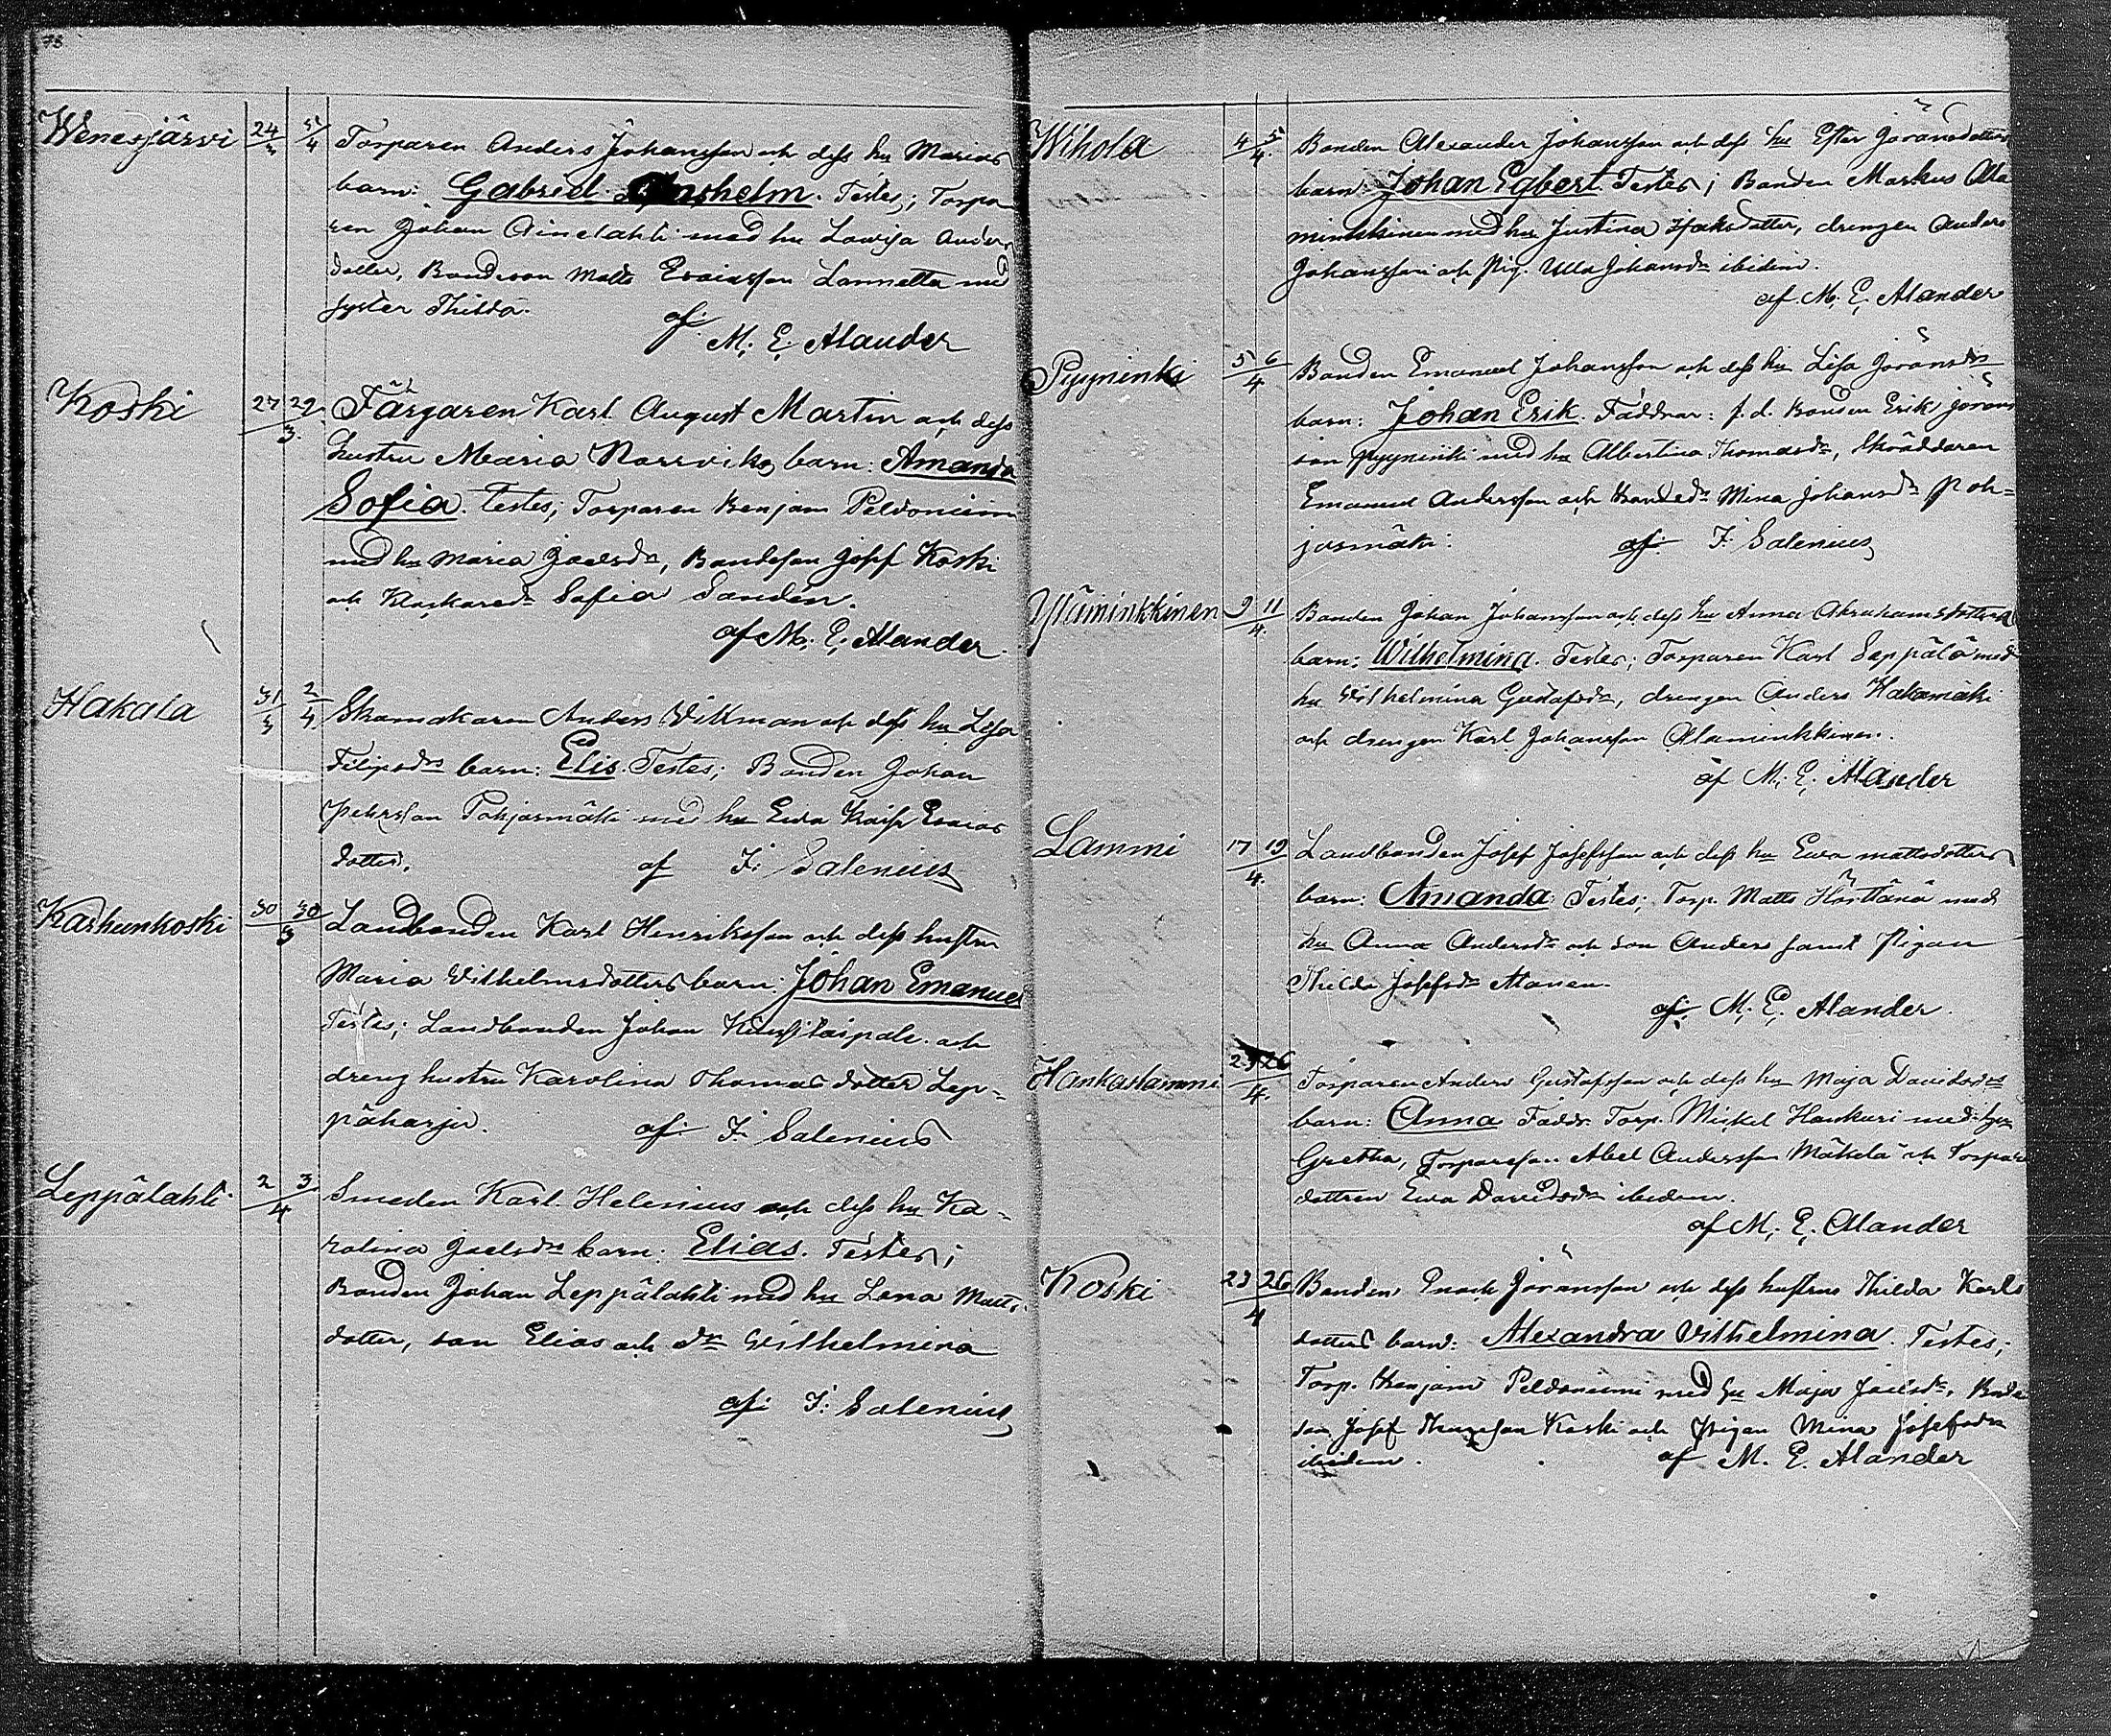 78
Wenesjärvi 24/3 5/4 Torparen Anders Johansson och dess hu Marias
barn: Gabriel Anshelm. Testes; Torpa
ren Johan Ainelahti med hu Lovisa Anders
dotter, Bondeson Matts Esaiasson Lannetta med
syster Thilda.
af M. E. Alander
Koski 27 29/3. Färgaren Karl August Martin och dess
hustru Maria Norrviks barn: Amanda
Sofia. Testes; Torparen Benjam Peldoniemi
med hu Maria Joelsdr, Bondeson Josef Koski
och Klockaredr Sofia Sandén.
af M. E. Alander.
Hakala 31/3 2/4 Skomakaren Anders Vikman och dess hu Lisa
Filipsdrs barn: Elis. Testes; Bonden Johan
Pehrsson Pohjasmäki med hu Eva Kaisa Esaias
dotter. af F. Salenius
Karhunkoski 30 30/3 Landbonden Karl Henriksson och dess hustru
Maria Vilhelmsdotters barn: Johan Emanuel
Testes; Landbonden Johan taipale och
dreng hustru Karolina Thomas dotter Lep-
päharju. af F. Salenius
Leppälahti 2 3/4 Smeden Karl Helenius och dess hu Ka-
rolina Joelsdrs barn: Elias. Testes;
Bonden Johan Leppälahti med hu Lena Matts-
dotter, son Elias och dr Vilhelmina
af F. Salenius
Wihola 4 5/4. Bonden Alexander Johansson och dess hu Ester Göransdotters
barn: Johan Egbert. Testes; Bonden Markus Ala
minkkinen med hu Justina Isaksdotter, drengen Anders
Johansson och Pig. Ulla Johansdr ibidem.
af M. E. Alander
Pyyninki 5 6/4 Bonden Emanuel Johansson och dess hu Lisa Göransdrs
barn: Johan Erik. Faddrar: f. d. Bonden Erik Jöran
son Pyyninki med hu Albertina Thomasdr, Skräddaren
Emanuel Andersson och Bondedr Mina Johansdr Poh=
jasmäki. af F. Salenius
Yliminkkinen 9 11/4. Bonden Johan Johansson och dess hu Anna Abrahamsdotters
barn: Wilhelmina. Testes; Torparen Karl Seppälä med
hu Vilhelmina Gustafsdr, drengen Anders Hakamäki
och drengen Karl Johansson Alaminkkinen.
af M. E. Alander
Lammi 17 19/4. Landbonden Josef Josefsson och dess hu Eva Mattsdotters
barn: Amanda. Testes; Torp. Matts Hörttänä med
hu Anna Andersdr och son Anders samt Pigan
Thilda Josefsdr Alanen.
af M. E. Alander.
Hankaslammi 25 26/4. Torparen Anders Gustafsson och dess hu Maja Davidsdrs
barn: Anna Faddr. Torp. Mickel Hankuri med hu
Gretha, Torpareson Abel Andersson Mäkelä och Torpare
dottren Eva Davidsdr ibidem.
af M. E. Alander
Koski 23 26/4 Bonden Enoch Jöransson och dess hustrus Thilda Karls
dotters barn: Alexandra Vilhelmina. Testes;
Torp. Benjam Peldoniemi med hu Maja Joelsdr, Bonde
son Josef Koski och Pigan Mina Josefsdr
ibidem. af M. E. Alander